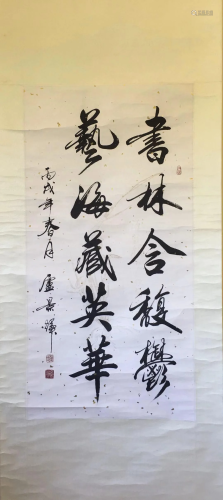 書林含馥鬱
藝海藏英華
丙戌年春月
盧景輝